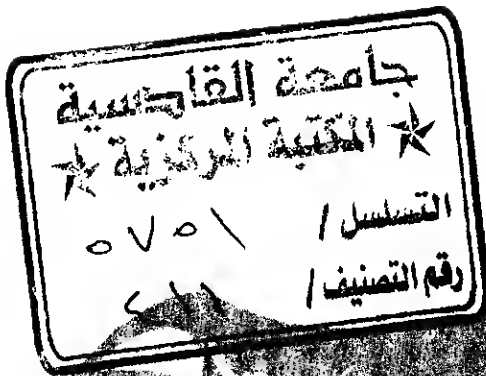 جامعة القادسية
المكتبة المركزية
التسلسل / ٥٧٥١
رقم التصنيف /